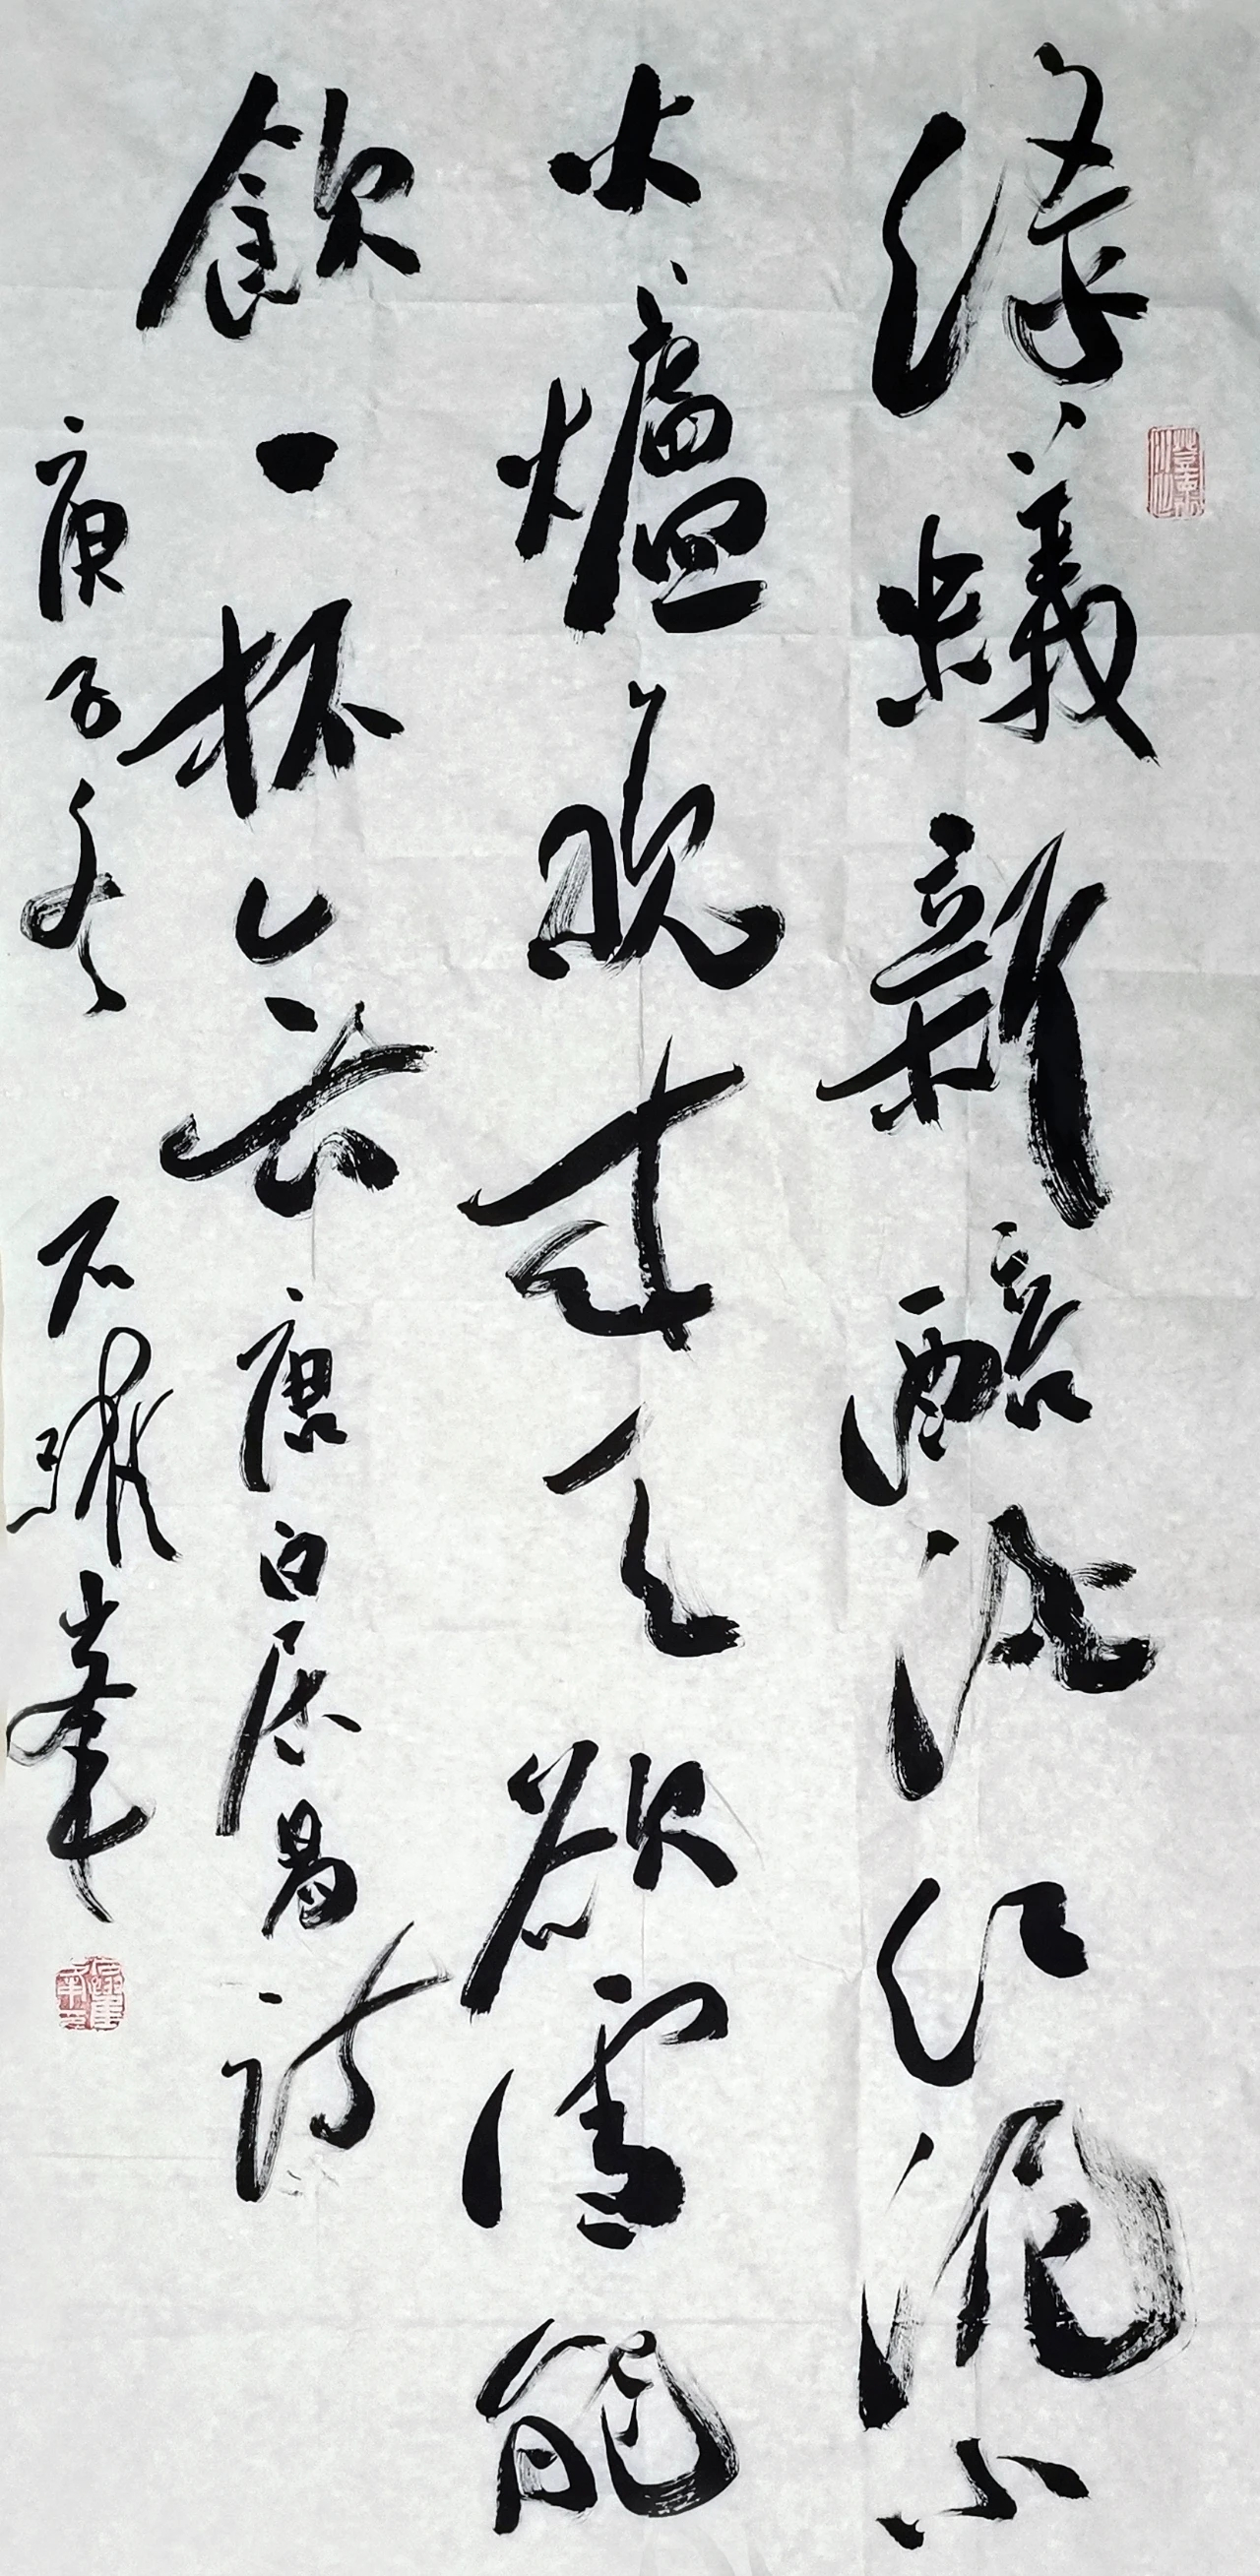 綠蟻新醅酒紅泥小
火爐晚來天欲雪能
飲一杯無唐白居易詩
庚子冬石峯